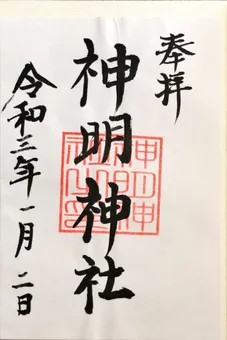 奉拝
神明神社
令和三年一月二日